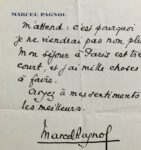 MARCEL PAGNOL
m'attend : c'est pourquoi
je ne viendrai pas non plus
mon séjour à Paris est très
court, et j'ai mille choses
à faire.
Croyez à mes sentiments
les meilleurs.
Marcel Pagnol